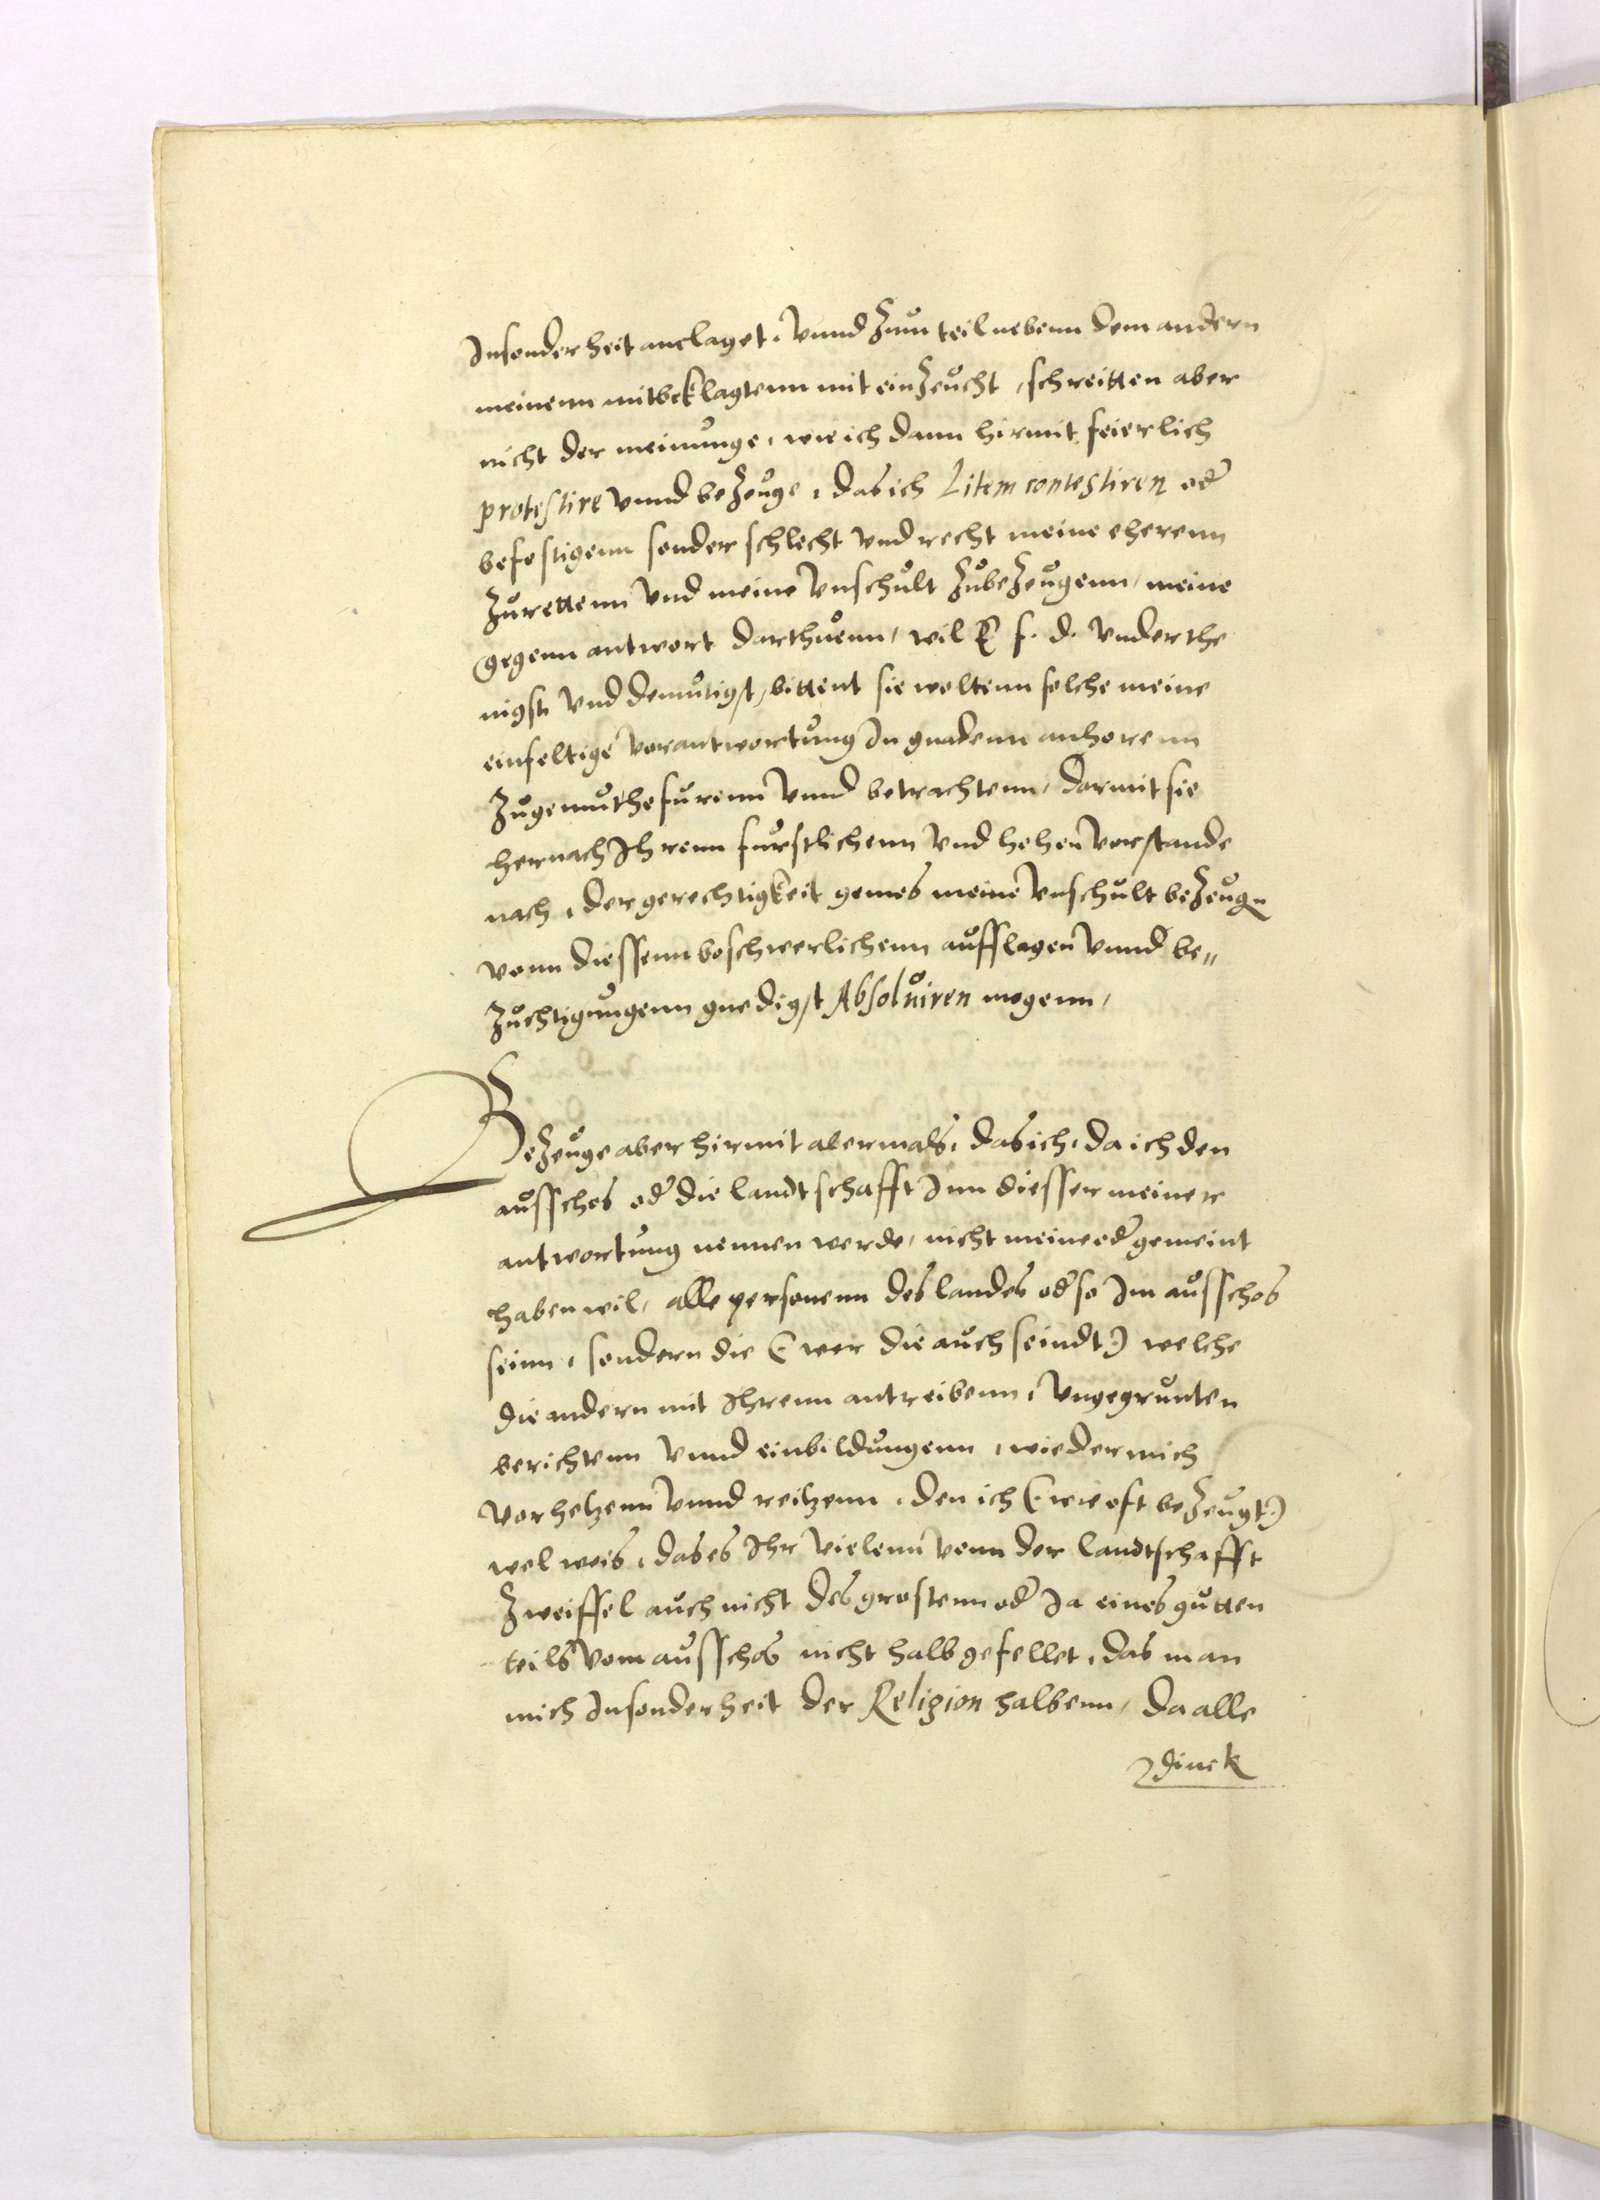 Insonderheit anclaget, vnnd zum teil nebenn dem andern
meinenn mitbeklagtenn mit einzeucht, schreitten aber
nicht der meinunge, wie ich dann hirmit feierlich
protestire vnnd bezeuge, das ich Litem contestiren od
befestigenn sonder schlecht vnd recht meine eherenn
zurettenn vnd meine vnschult zubezeugenn, meine
gegenn antwort darthuenn, wil E f. d. vnderthe
nigst vnd demutigst, bittent sie woltenn solche meine
einfeltige verantwortung In gnadenn anhorenn
zugemuthefurenn vnnd betrachtenn, darmit sie
hernach Ihrenn furstlichenn vnd hohen verstande
nach, der gerechtigkeit gemes meine vnschult bezeugn
vonn diessenn beschwerlichenn aufflagen vnnd be„
zuchtigungenn gnedigst Absoluiren mogenn,
Bezeuge aber hirmit abermals, das ich, da ich den
ausschos od die landtschafft Inn diesser meiner
antwortung nennen werde, nicht meine od gemeint
haben wil, alle personenn des landes od so Im ausschos
seinn, sondern die (: wer die auch seindt :) welche
die andern mit Ihrenn antreibenn, vngegrunten
berichtenn vnnd einbildungenn, wieder mich
verhetzenn vnnd reitzenn, den ich (: wie oft bezeugt :)
wol weis, das es Ihr vielenn vonn der landtschafft
zweiffel auch nicht des grostenn od Ja eines gutten
teils vom ausschos nicht halb gefellet, das man
mich Insonderheit der Religion halbenn, da alle
dinck